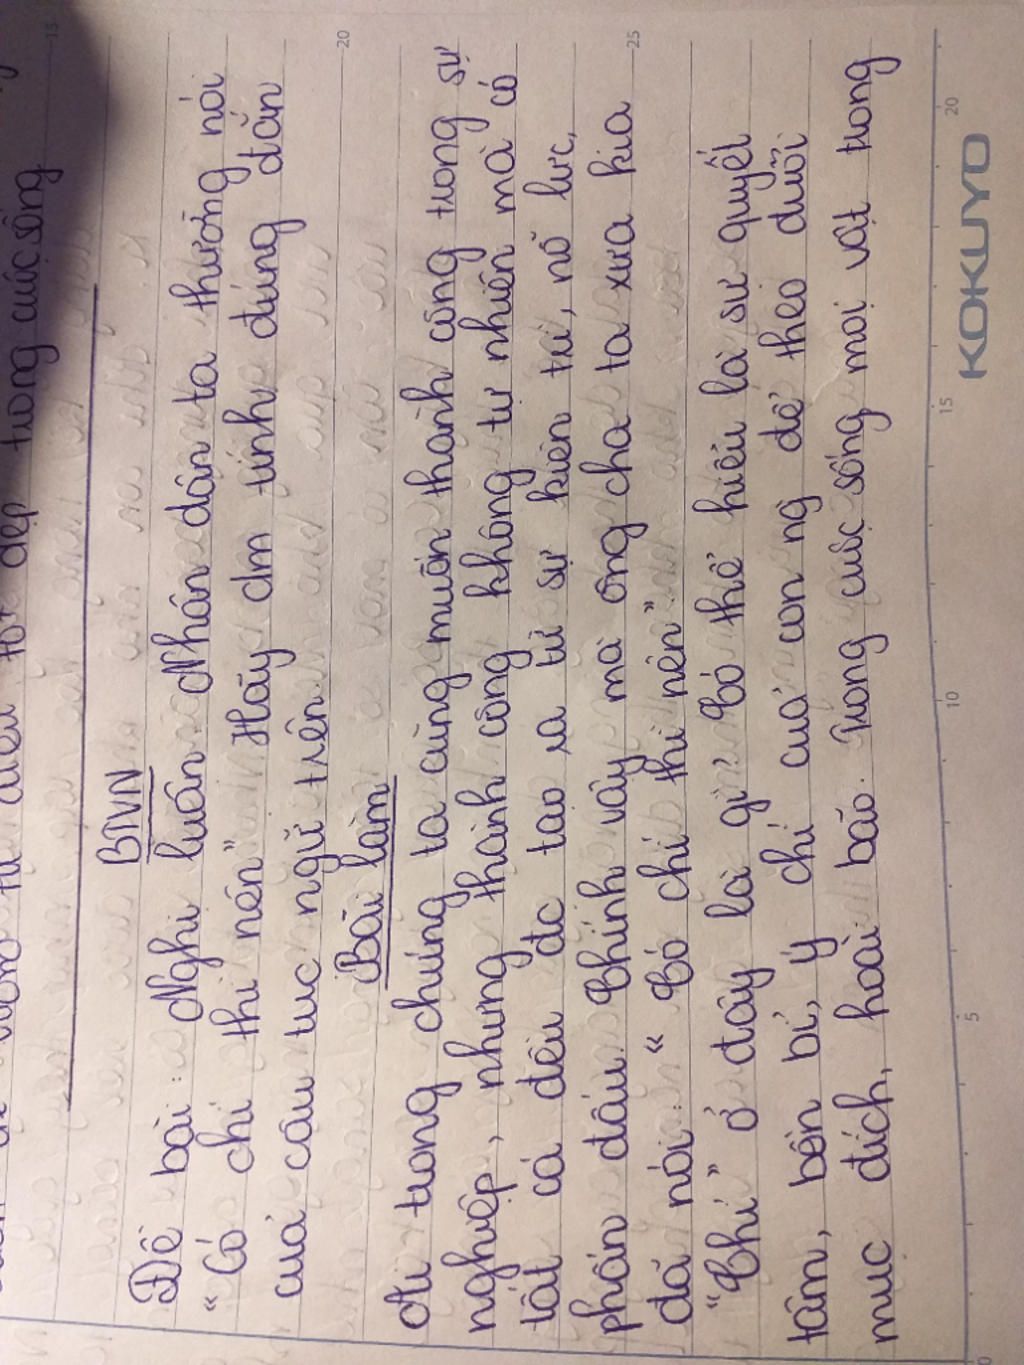 đẹp trong cuộc sống
BTVN
Đề bài: Nghị luận Nhân dân ta thường nói
"Có chí thì nên" Hãy cm tính đúng đắn
của câu tục ngữ trên
Bài làm
Ai trong chúng ta cũng muốn thành công trong sự
nghiệp, nhưng thành công không tự nhiên mà có
tất cả đều đc tạo ra từ sự kiên trì, nỗ lực,
phấn đấu. Chính vậy mà ông cha ta xưa kia
đã nói: "Có chí thì nên"
"Chí" ở đây là gì? Có thể hiểu là sự quyết
tâm, bền bỉ, ý chí của con ng để theo đuổi
mục đích, hoài bão. Trong cuộc sống mọi vật trong
KOKUYO
15
20
25
5
10
15
20